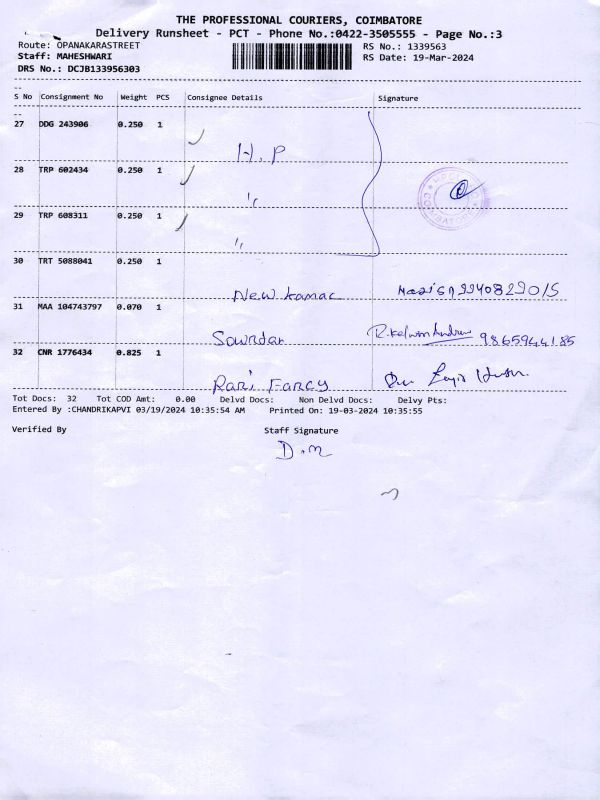 THE PROFESSIONAL COURIERS, COIMBATORE
Delivery Runsheet - PCT - Phone No.:0422-3505555 - Page No.:3
Route: OPANAKARASTREET RS No.: 1339563
Staff: MAHESHWARI RS Date: 19-Mar-2024
DRS No.: DCJB133956303
S No Consignment No Weight PCS Consignee Details Signature
27 DDG 243906 0.250 1
H.P
28 TRP 602434 0.250 1
〃
29 TRP 608311 0.250 1
〃
30 TRT 5088041 0.250 1
New kamac
31 MAA 104743797 0.070 1
Sowrdar 9865944185
32 CNR 1776434 0.825 1
Rari Farcy
Tot Docs: 32 Tot COD Amt: 0.00 Delvd Docs: Non Delvd Docs: Delvy Pts:
Entered By :CHANDRIKAPVI 03/19/2024 10:35:54 AM Printed On: 19-03-2024 10:35:55
Verified By Staff Signature
D.M